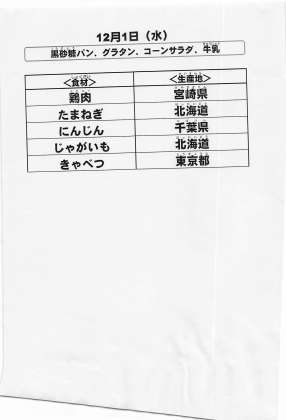 12月1日（水）
黒砂糖パン、グラタン、コーンサラダ、牛乳
＜食材＞ ＜生産地＞
鶏肉 宮崎県
たまねぎ 北海道
にんじん 千葉県
じゃがいも 北海道
きゃべつ 東京都